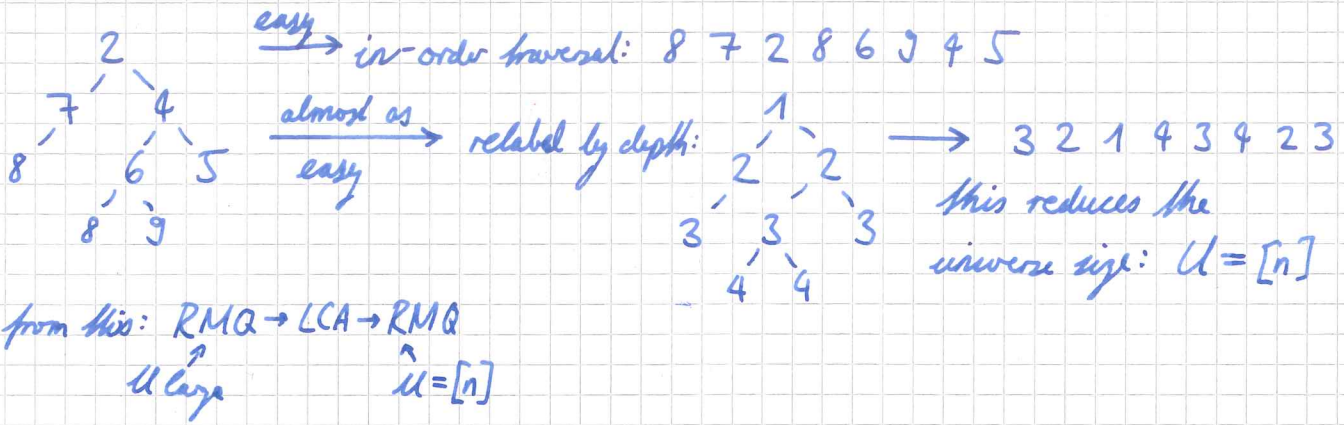 2 easy → in-order traversal: 8 7 2 8 6 9 4 5
7 4 almost as easy → relabel by depth: 1 → 3 2 1 4 3 4 2 3
8 6 5 2 2 this reduces the
8 9 3 3 3 universe size: U = [n]
4 4
from this: RMQ → LCA → RMQ
U large U = [n]